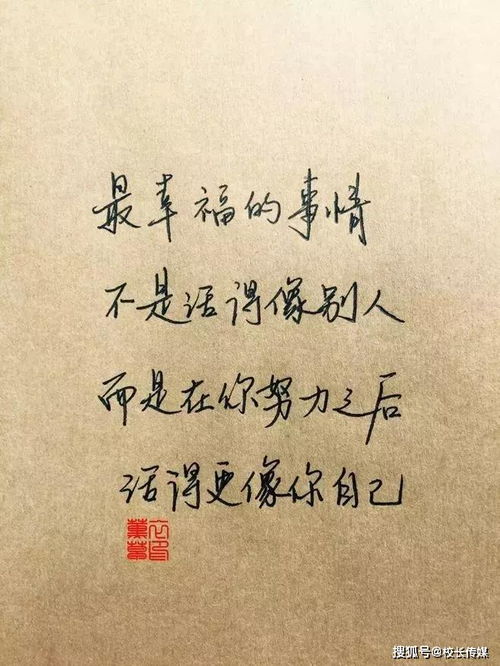 最幸福的事情
不是活得像别人
而是在你努力之后
活得更像你自己
搜狐号@校长传媒